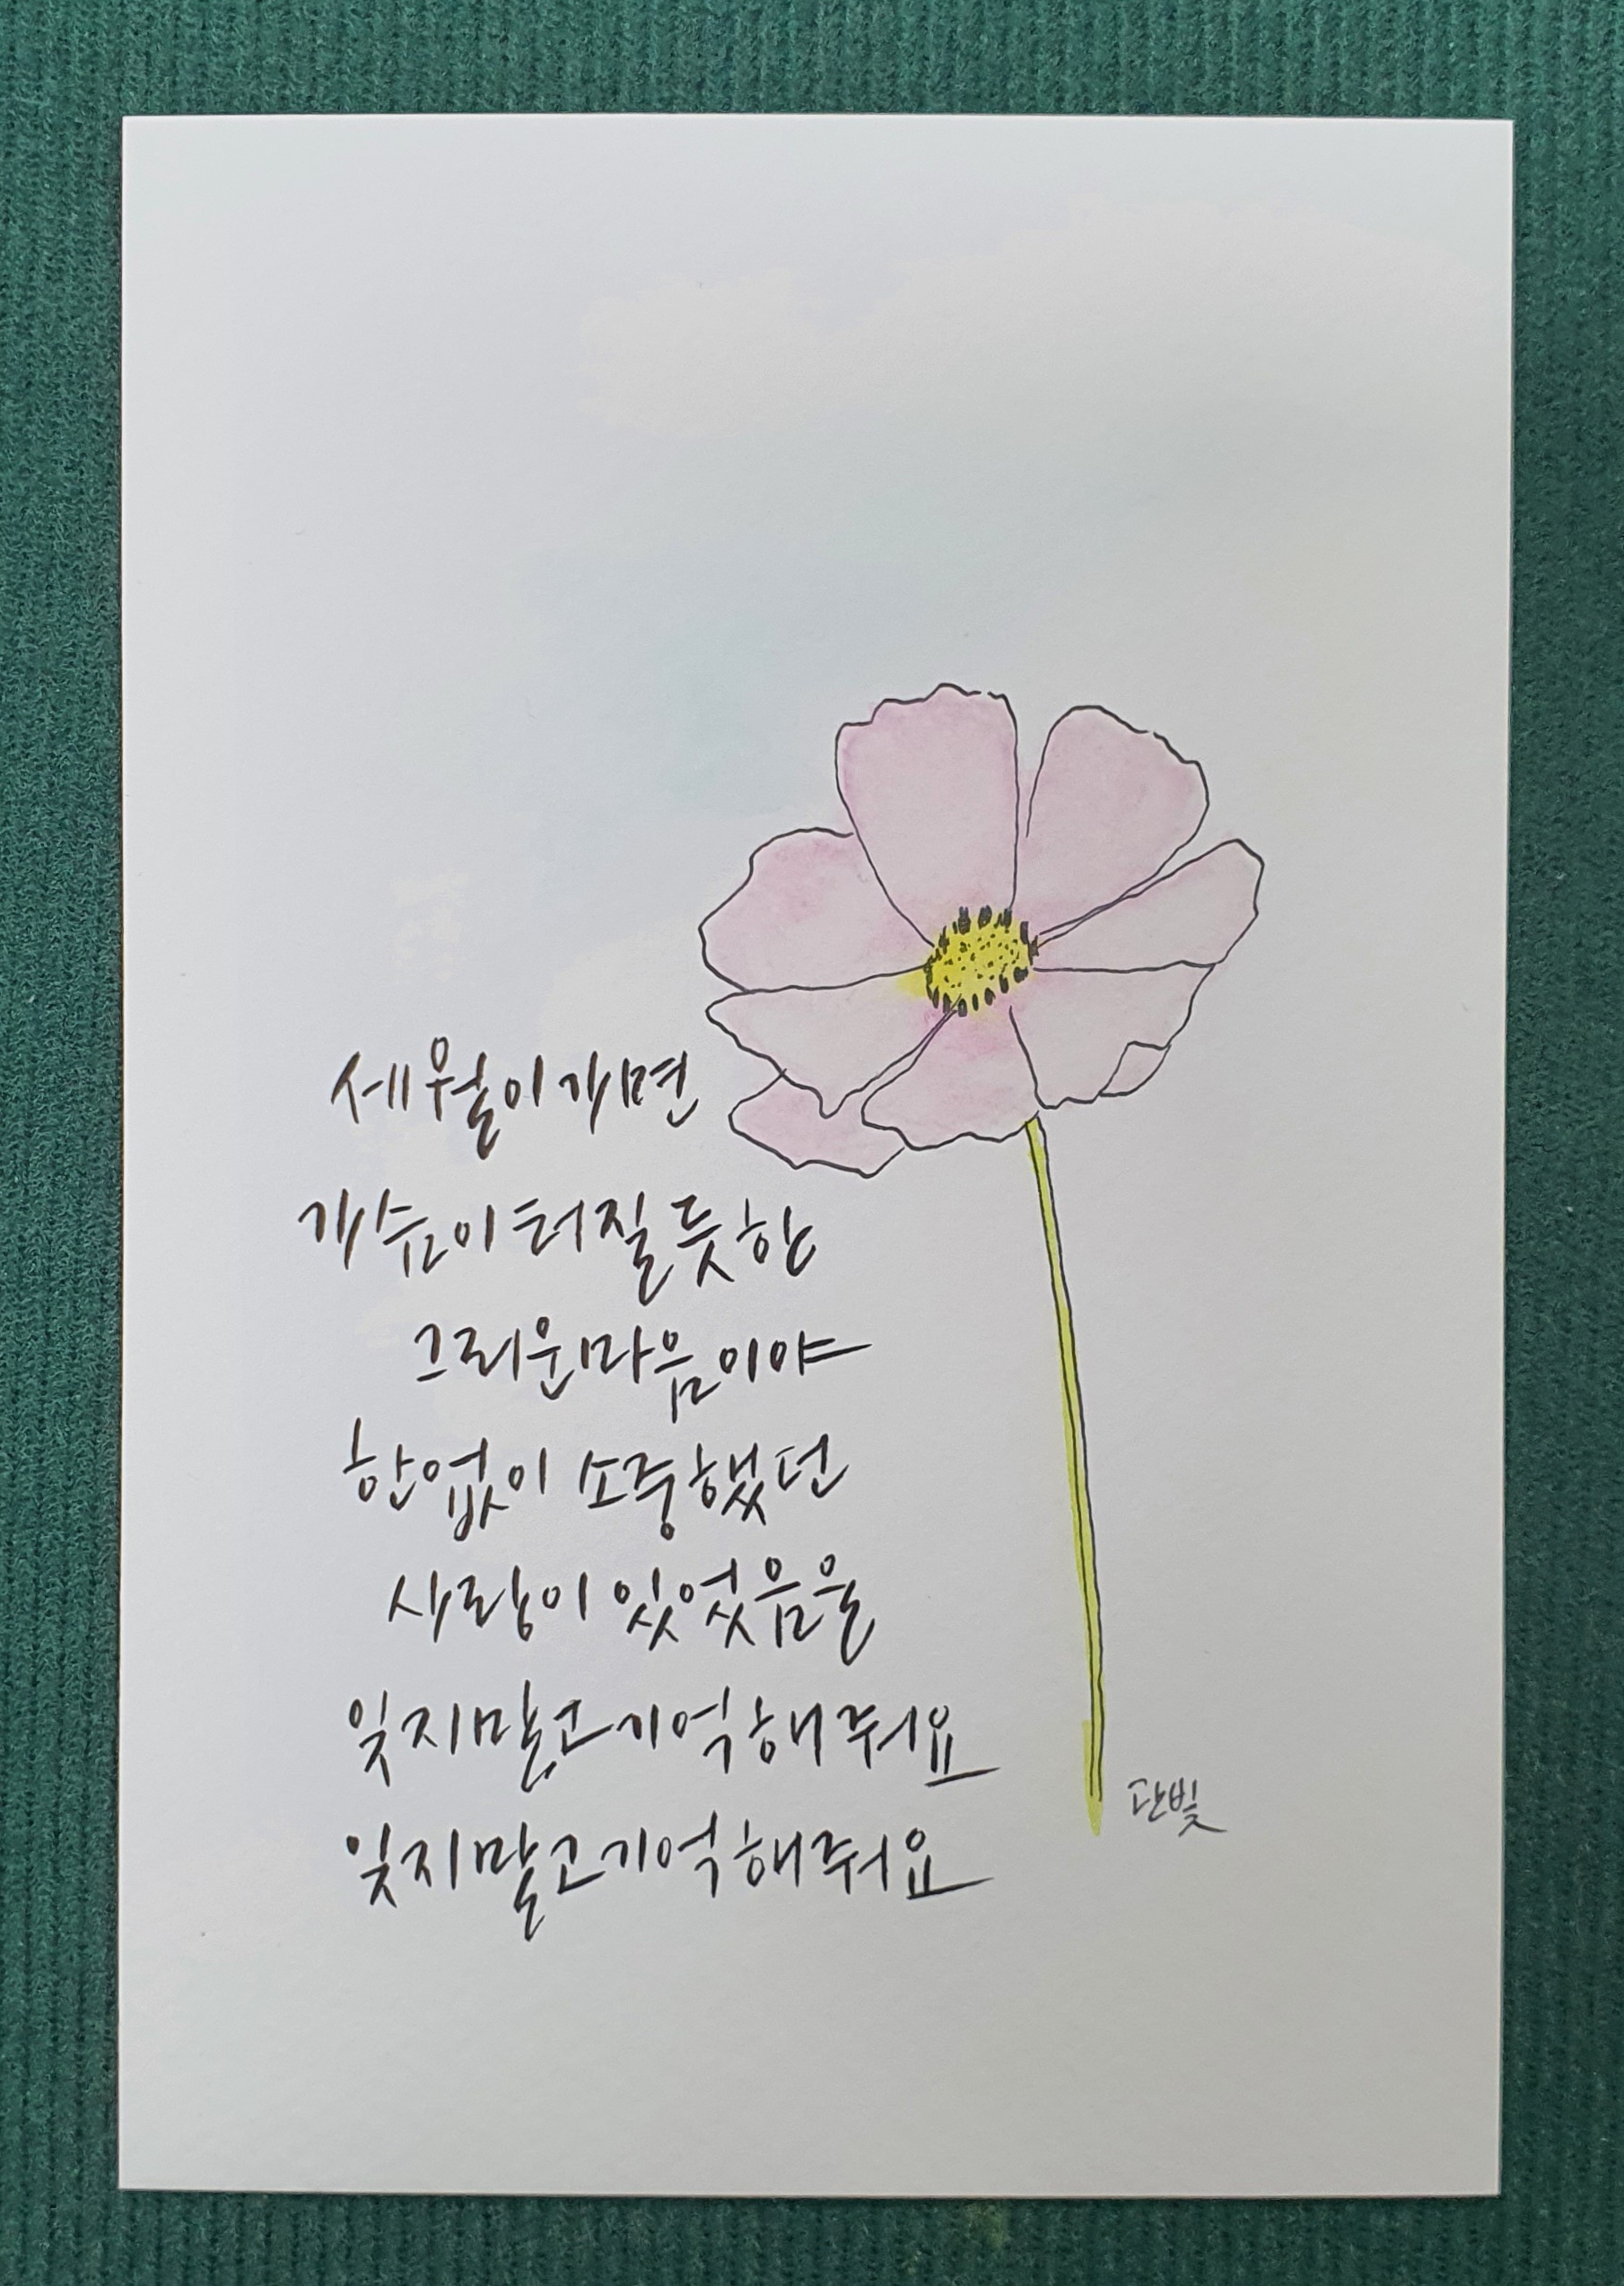 세월이 가면
가슴이 터질듯한
그리운 마음이야
한없이 소중했던
사랑이 있었음을
잊지말고 기억해줘요
잊지말고 기억해줘요
단빛